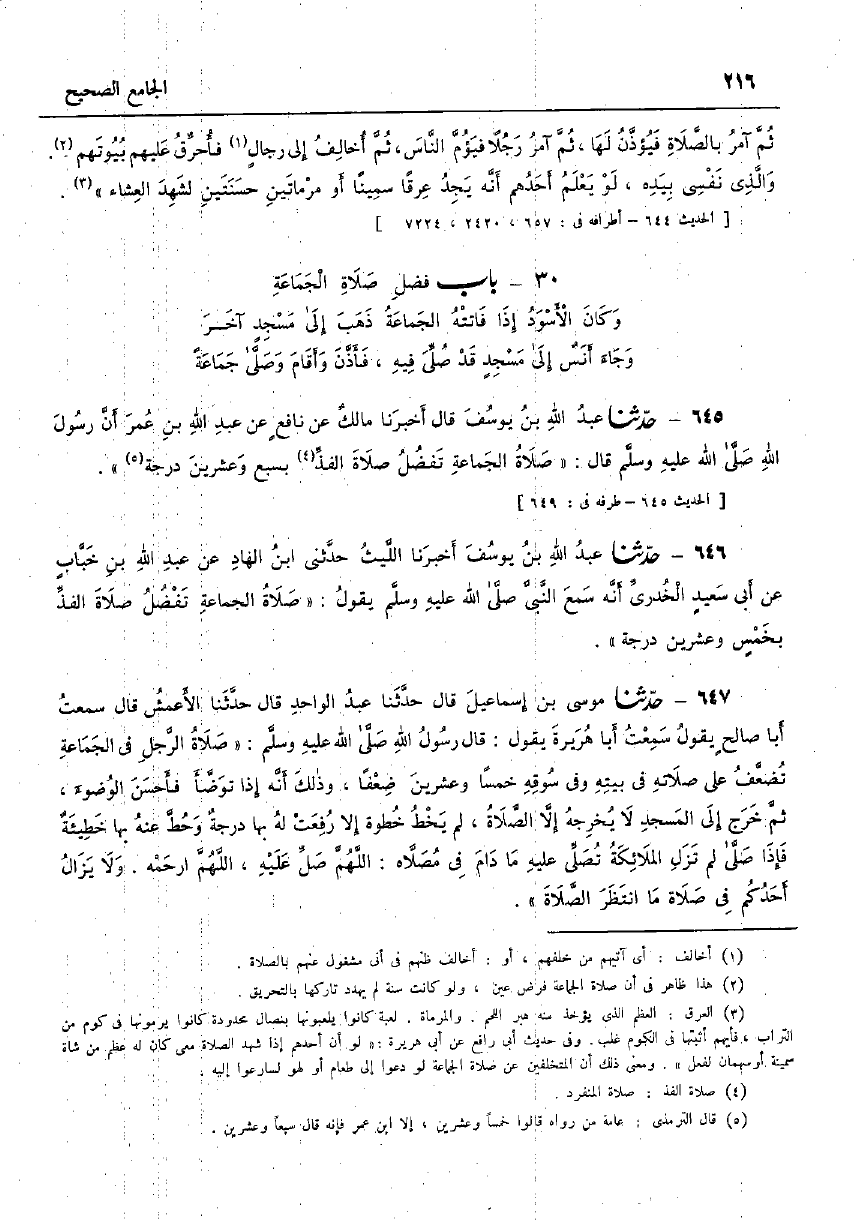 ٢١٦
الجامع الصحيح
ثُمَّ آمرُ بالصَّلَاةِ فَيُؤذَّنُ لَهَا ، ثُمَّ آمرُ رَجُلًا فيَؤُمَّ النَّاسَ، ثُمَّ أخالِفُ إلى رجالٍ(١) فأُحرِّقُ عَليهم بُيُوتَهم(٢).
وَالَّذِى نَفْسِى بيَدِه ، لَوْ يَعْلَمُ أحَدُهم أنَّه يَجِدُ عِرقًا سمِينًا أو مرْماتَينِ حسَنَتَينِ لشَهِدَ العِشاء »(٣) .
[ الحديث ٦٤٤ – أطرافه فى : ٦٥٧ ، ٢٤٢٠ ، ٧٢٢٤ ]
٣٠ – باب فضلِ صَلَاةِ الْجَمَاعَةِ
وَكَانَ الْأَسْوَدُ إذَا فَاتتْهُ الجماعَةُ ذَهَبَ إلَىٰ مَسْجدٍ آخَـرَ
وَجَاءَ أنَسٌ إلىٰ مَسْجدٍ قَدْ صُلِّىَ فِيهِ ، فَأَذَّنَ وَأَقَامَ وَصَلَّىٰ جَمَاعَةً
٦٤٥ – حدّثنا عبدُ اللهِ بنُ يوسُفَ قال أخبرَنا مالكٌ عن نافعٍ عن عبدِ اللهِ بنِ عُمرَ أنَّ رسُولَ
اللهِ صَلَّىٰ الله عليهِ وسلَّم قال : « صَلَاةُ الجماعةِ تَفضُلُ صلاةَ الفذِّ(٤) بسبع وَعشرينَ درجة(٥) » .
[ الحديث ٦٤٥ – طرفه فى : ٦٤٩ ]
٦٤٦ – حدّثنا عبدُ اللهِ بنُ يوسُفَ أخبرَنا اللَّيثُ حدَّثنى ابنُ الهادِ عن عبدِ اللهِ بنِ خَبَّابٍ
عن أبى سَعيدٍ الْخُدرىِّ أنَّه سَمعَ النَّبىَّ صلَّىٰ الله عليهِ وسلَّم يقولُ : « صَلَاةُ الجماعةِ تَفْضُلُ صلاةَ الفذِّ
بخَمْسٍ وعشرين درجة » .
٦٤٧ – حدّثنا موسى بن إسماعيلَ قال حدَّثَنا عبدُ الواحدِ قال حدَّثَنا الأعمشُ قال سمعتُ
أبا صالحٍ يقولُ سَمِعْتُ أبا هُرَيرةَ يقول : قال رسُولُ اللهِ صَلَّىٰ الله عليهِ وسلَّم : « صَلَاةُ الرَّجلِ فى الجَمَاعةِ
تُضعَّفُ على صلاتهِ فى بيتِهِ وفى سُوقِهِ خمسًا وعشرينَ ضِعْفًا ، وذلكَ أنَّه إذا توَضَّأَ فأحسَنَ الوُضوءَ ،
ثمَّ خَرَج إلَى المَسجدِ لَا يُخرِجهُ إلَّا الصَّلَاةُ ، لم يَخْطُ خُطوة إلا رُفِعَتْ لهُ بها درجةٌ وَحُطَّ عنهُ بها خَطِيئَةٌ
فَإذَا صَلَّىٰ لم تَزَلِ المَلَائِكَةُ تُصَلِّى عليهِ مَا دَامَ فى مُصَلَّاه : اللَّهُمَّ صَلِّ عَلَيْهِ ، اللَّهُمَّ ارحَمْه . وَلَا يَزَالُ
أَحَدُكُم فى صَلَاة مَا انتَظَرَ الصَّلَاةَ » .
(١) أخالف : أى آتيهم من خلفهم ، أو : أخالف ظنهم فى أنى مشغول عنهم بالصلاة .
(٢) هذا ظاهر فى أن صلاة الجماعة فرض عين ، ولو كانت سنة لم يهدد تاركها بالتحريق .
(٣) العرق : العظم الذى يؤخذ منه هبر اللحم . والمرماة . لعبة كانوا يلعبونها بنصال محدودة كانوا يرمونها فى كوم من
التراب ، فأيهم أثبتها فى الكوم غلب. وفى حديث أبى رافع عن أبى هريرة : « لو أن أحدهم إذا شهد الصلاة معى كان له عظم من شاة
سمينة أو سهمان لفعل » . ومعنى ذلك أن المتخلفين عن صلاة الجماعة لو دعوا إلى طعام أو لهو لسارعوا إليه .
(٤) صلاة الفذ : صلاة المنفرد .
(٥) قال الترمذى : عامة من رواه قالوا خمساً وعشرين ، إلا ابن عمر فإنه قال سبعاً وعشرين .